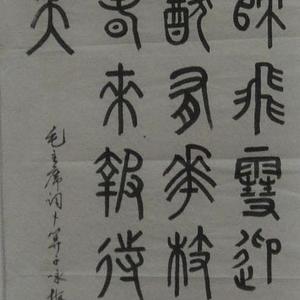 歸飛雪迎
猶有花枝
春來報待
笑
毛主席词卜算子咏梅